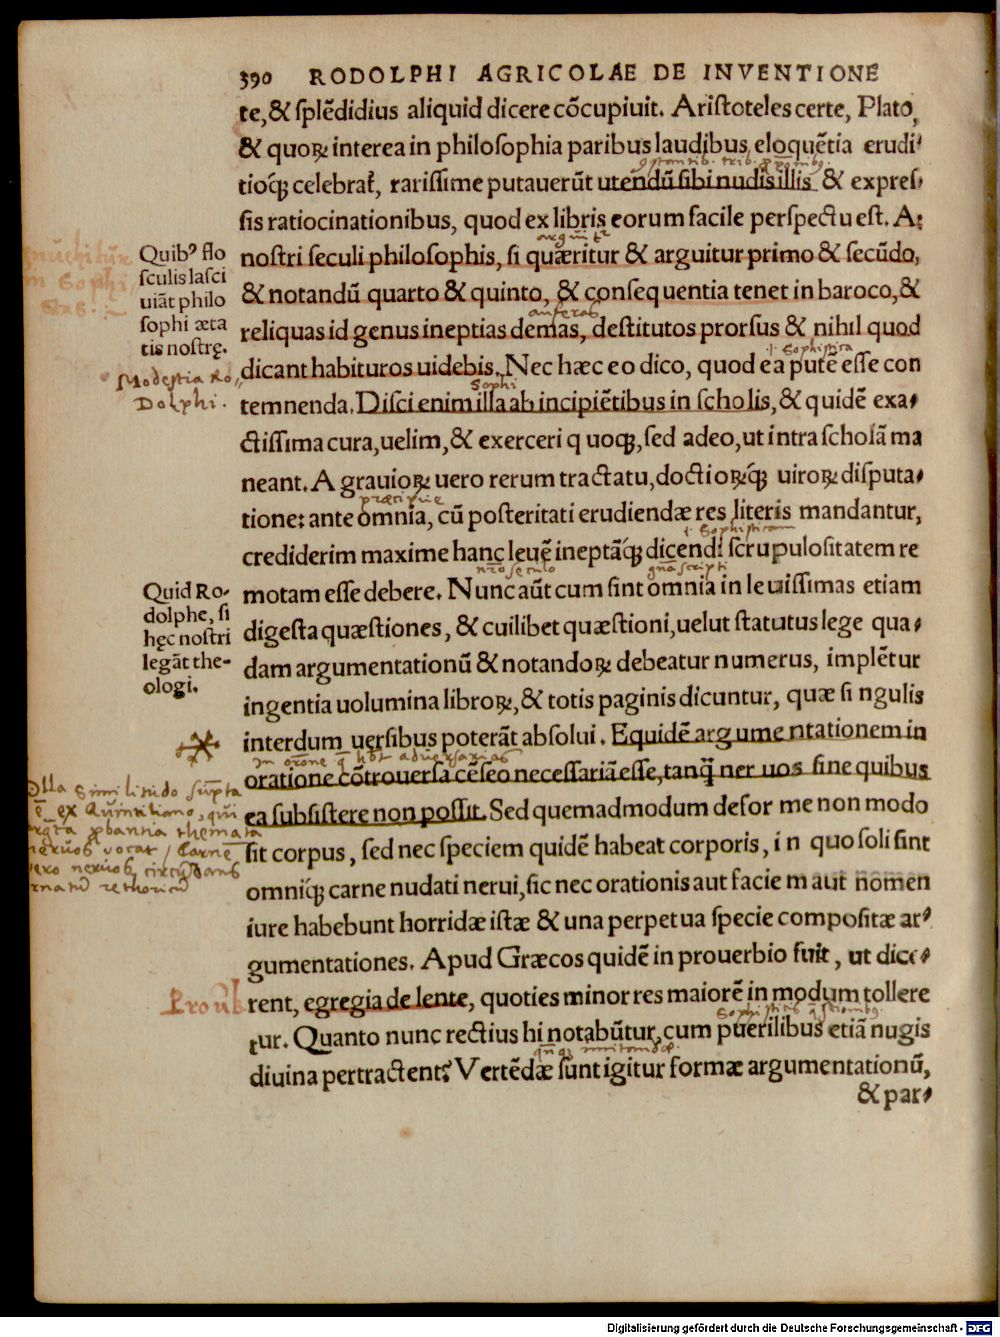 390 RODOLPHI AGRICOLAE DE INVENTIONE
te, & splēdidius aliquid dicere cōcupiuit. Aristoteles certe, Plato,
& quoꝝ interea in philosophia paribus laudibus, eloquētia erudi-
tioq́ꝫ celebrat̃, rarissime putauerūt utendū sibi nudis illis & expres-
sis ratiocinationibus, quod ex libris eorum facile perspectu est. A:
nostri seculi philosophis, si quæritur & arguitur primo & secūdo,
& notandū quarto & quinto, & consequentia tenet in baroco, &
auferas
reliquas id genus ineptias demas, destitutos prorsus & nihil quod
dicant habituros uidebis. Nec hæc eo dico, quod ea putē esse con
Sophi
temnenda. Disci enim illa ab incipiētibus in scholis, & quidē exa-
ctissima cura, uelim, & exerceri quoqꝫ, sed adeo, ut intra scholā ma
neant. A grauioꝝ uero rerum tractatu, doctioꝝq́ꝫ uiroꝝ disputa-
tione: ante omnia, cū posteritati erudiendæ res literis mandantur,
crediderim maxime hanc leuē ineptāq́ꝫ dicendi scrupulositatem re
motam esse debere. Nunc aūt cum sint omnia in leuissimas etiam
digesta quæstiones, & cuilibet quæstioni, uelut statutus lege qua-
dam argumentationū & notandoꝝ debeatur numerus, implētur
ingentia uolumina libroꝝ, & totis paginis dicuntur, quæ singulis
interdum uersibus poterāt absolui. Equidē argumentationem in
oratione cōtrouersa cēseo necessariā esse, tanq̄ neruos sine quibus
ea subsistere non possit. Sed quemadmodum deforme non modo
sit corpus, sed nec speciem quidē habeat corporis, in quo soli sint
omniq́ꝫ carne nudati nerui, sic nec orationis aut faciem aut nomen
iure habebunt horridæ istæ & una perpetua specie compositæ ar-
gumentationes. Apud Græcos quidē in prouerbio fuit, ut dice-
rent, egregia de lente, quoties minor res maiorē in modum tollere
tur. Quanto nunc rectius hi notabūtur, cum puerilibus etiā nugis
diuina pertractent? Vertēdæ sunt igitur formæ argumentationū,
& par-
Quibꝰ flo
sculis lasci
uiāt philo
sophi æta
tis nostrę.
Modestia Ro
Dolphi.
Quid Ro-
dolphe, si
hęc nostri
legāt the-
ologi.
Prouerb
Digitalisierung gefördert durch die Deutsche Forschungsgemeinschaft - DFG